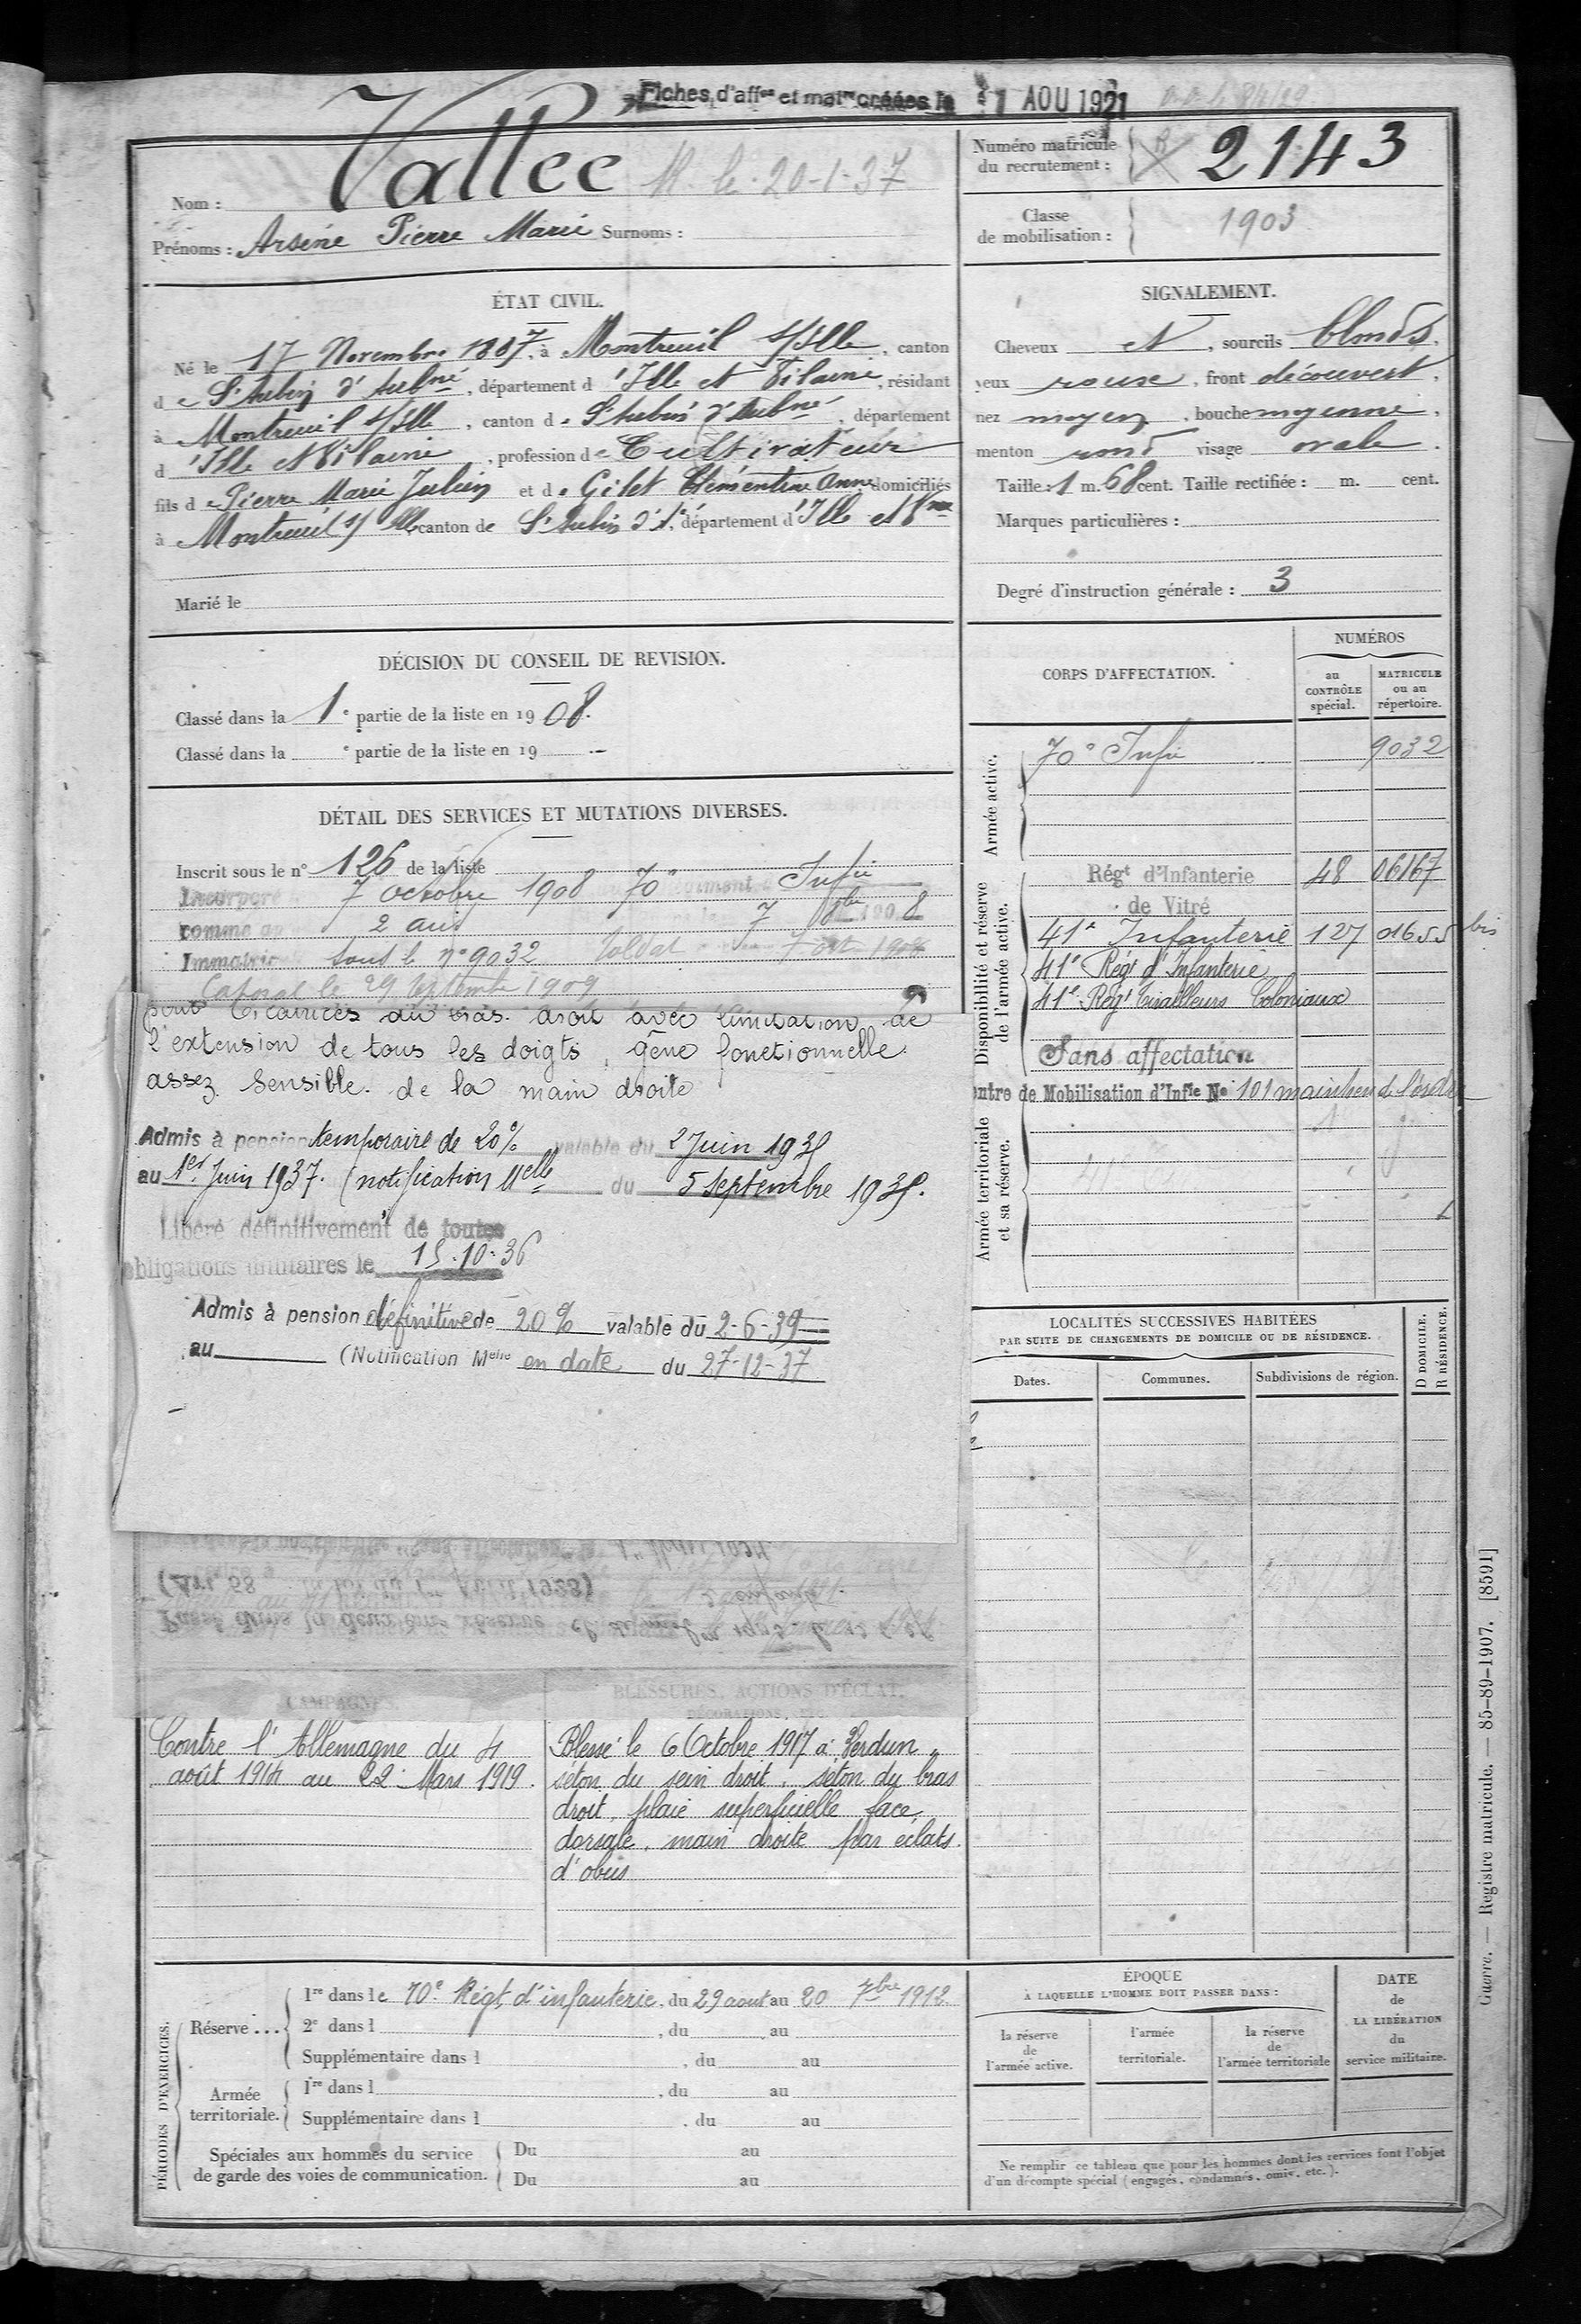 Fiches d'aff<sup>on</sup> et mat<sup>re</sup> créées le 1 AOU 1921
Nom : Vallée M. le 20-1-37
Prénoms : Arsène Pierre Marie Surnoms :
Numéro matricule du recrutement : 2143
Classe de mobilisation : 1903
ÉTAT CIVIL.
Né le 17 Novembre 1887, à Montreuil s/Ille, canton
de St Aubin d'Aubné, département d'Ille et Vilaine, résidant
à Montreuil s/Ille, canton de St Aubin d'Aubné, département
d'Ille et Vilaine, profession de Cultivateur
fils de Pierre Marie Julien et de Gilet Clémentine Anne domiciliés
à Montreuil s/ Ille canton de St Aubin d'A., département d'Ille et Vne
Marié le
SIGNALEMENT.
Cheveux et, sourcils blonds,
yeux rouse, front découvert,
nez moyen, bouche moyenne,
menton rond visage ovale.
Taille : 1 m. 68 cent. Taille rectifiée : m. cent.
Marques particulières :
Degré d'instruction générale : 3
DÉCISION DU CONSEIL DE REVISION.
Classé dans la 1e partie de la liste en 1908.
Classé dans la e partie de la liste en 19
DÉTAIL DES SERVICES ET MUTATIONS DIVERSES.
Inscrit sous le n° 126 de la liste
Incorporé 7 octobre 1908 70e Infie
comme 2 ans 7 8bre 1908
Immatric sous le n° 9032 Soldat 7 oct 1908
Caporal le 29 septembre 1909
pour cicatrices du bras droit avec limitation de
l'extension de tous les doigts, gêne fonctionnelle
assez sensible de la main droite
Admis à pension temporaire de 20% valable du 2 Juin 1935
au 1er Juin 1937. (notification Melle du 5 septembre 1935.
Libéré définitivement de toutes
obligations militaires le 15.10.36
Admis à pension définitive de 20% valable du 2-6-39
au (Notification Melle en date du 27-12-37
(Art. 58 de la loi du 1er Avril 1923)
Passé dans la deuxième réserve
CAMPAGNES.
Contre l'Allemagne du 4
août 1914 au 22 Mars 1919.
BLESSURES, ACTIONS D'ÉCLAT,
DÉCORATIONS, ETC.
Blessé le 6 Octobre 1917 à Verdun,
séton du sein droit, séton du bras
droit, plaie superficielle face
dorsale, main droite par éclats
d'obus
CORPS D'AFFECTATION.
NUMÉROS
au CONTRÔLE spécial.
MATRICULE ou au répertoire.
Armée active.
70e Infie 9032
Disponibilité et réserve de l'armée active.
Régt d'Infanterie 48 06167
de Vitré
41e Infanterie 127 01655 bis
41e Régt d'Infanterie
41e Régt Tirailleurs Coloniaux
Sans affectation
Centre de Mobilisation d'Infie No 101 maintien de l'ordre
Armée territoriale et sa réserve.
LOCALITÉS SUCCESSIVES HABITÉES
PAR SUITE DE CHANGEMENTS DE DOMICILE OU DE RÉSIDENCE.
Dates. Communes. Subdivisions de région.
D DOMICILE. R RÉSIDENCE.
PÉRIODES D'EXERCICES.
Réserve ...
1re dans le 70e Régt d'infanterie, du 29 aout au 20 7bre 1912
2e dans l , du au
Supplémentaire dans l , du au
Armée territoriale.
1re dans l , du au
Supplémentaire dans l , du au
Spéciales aux hommes du service de garde des voies de communication.
Du au
Du au
ÉPOQUE
À LAQUELLE L'HOMME DOIT PASSER DANS :
la réserve de l'armée active.
l'armée territoriale.
la réserve de l'armée territoriale
DATE de LA LIBÉRATION du service militaire.
Ne remplir ce tableau que pour les hommes dont les services font l'objet
d'un décompte spécial (engagés, condamnés, omis, etc.).
Guerre. — Registre matricule. — 85-89-1907. [8591]